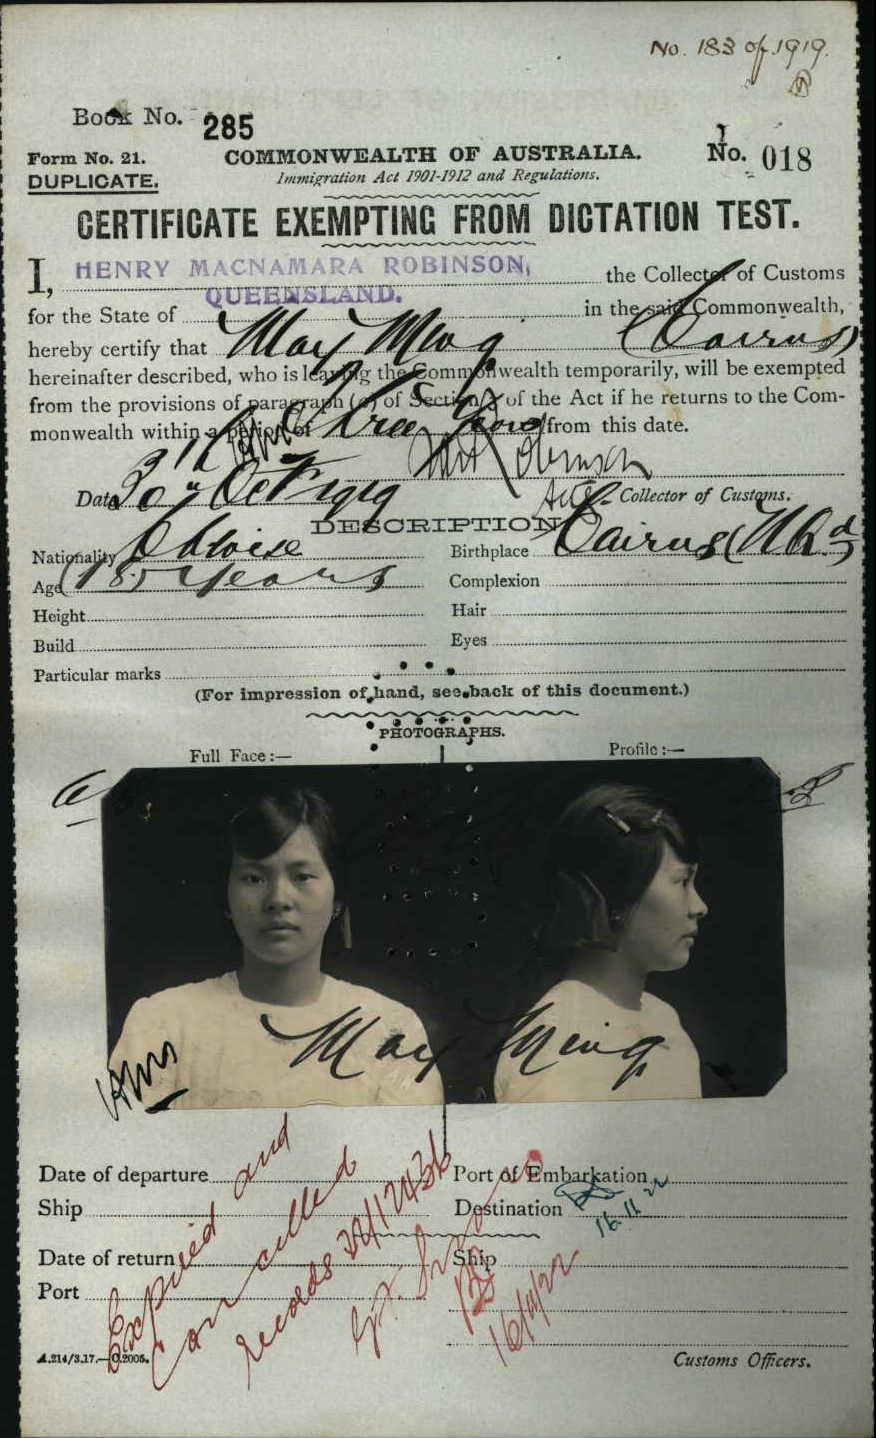 No. 183 of 1919.
Book No. 285
Form No. 21.
COMMONWEALTH OF AUSTRALIA.
No. 018
DUPLICATE.
Immigration Act 1901-1912 and Regulations.
CERTIFICATE EXEMPTING FROM DICTATION TEST.
I, HENRY MACNAMARA ROBINSON, the Collector of Customs
for the State of QUEENSLAND. in the said Commonwealth,
hereby certify that May Ming (Cairns)
hereinafter described, who is leaving the Commonwealth temporarily, will be exempted
from the provisions of paragraph (a) of Section 3 of the Act if he returns to the Com-
monwealth within a period of Three Years from this date.
Date 30th Oct 1919
Collector of Customs.
DESCRIPTION
Nationality Chinese
Birthplace Cairns (N Qd)
Age (18) years
Complexion
Height
Hair
Build
Eyes
Particular marks
(For impression of hand, see back of this document.)
PHOTOGRAPHS.
Full Face :—
Profile :—
May Ming
Date of departure
Port of Embarkation
Ship
Destination
16.11.22
Date of return
Ship
Port
Expired and
Cancelled
records 22/12436
16/11/22
A.214/3.17.—C.2005.
Customs Officers.